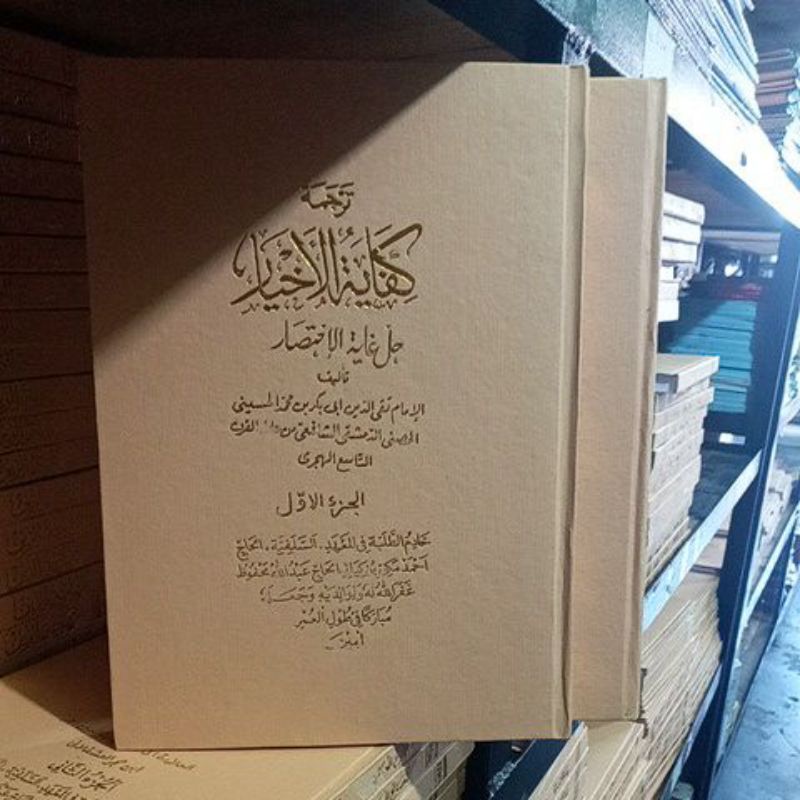 تَرْجَمَة
كِفَايَةُ الْأَخْيَار
حل غاية الإختصار
تأليف
الإمام تقي الدين ابى بكر بن محمد الحسيني
الحصنى الدمشقى الشافعي من القرن
التاسع الهجرى
الجزء الاوّل
خَادِمُ الطَّلَبَة فِى الْمَعْهَدِ السَّلَفِيَّة، الحَاجْ
اَحْمَدْ الحَاجْ عَبْدُ اللهْ مَحْفُوظْ
غَفَرَ اللهُ لَهُ وَلِوَالِدَيْهِ وَجَعَلَهُ
مُبَارَكًا فِى طُوْلِ الْعُمْرِ
اٰمِيْن
الجزء الثاني